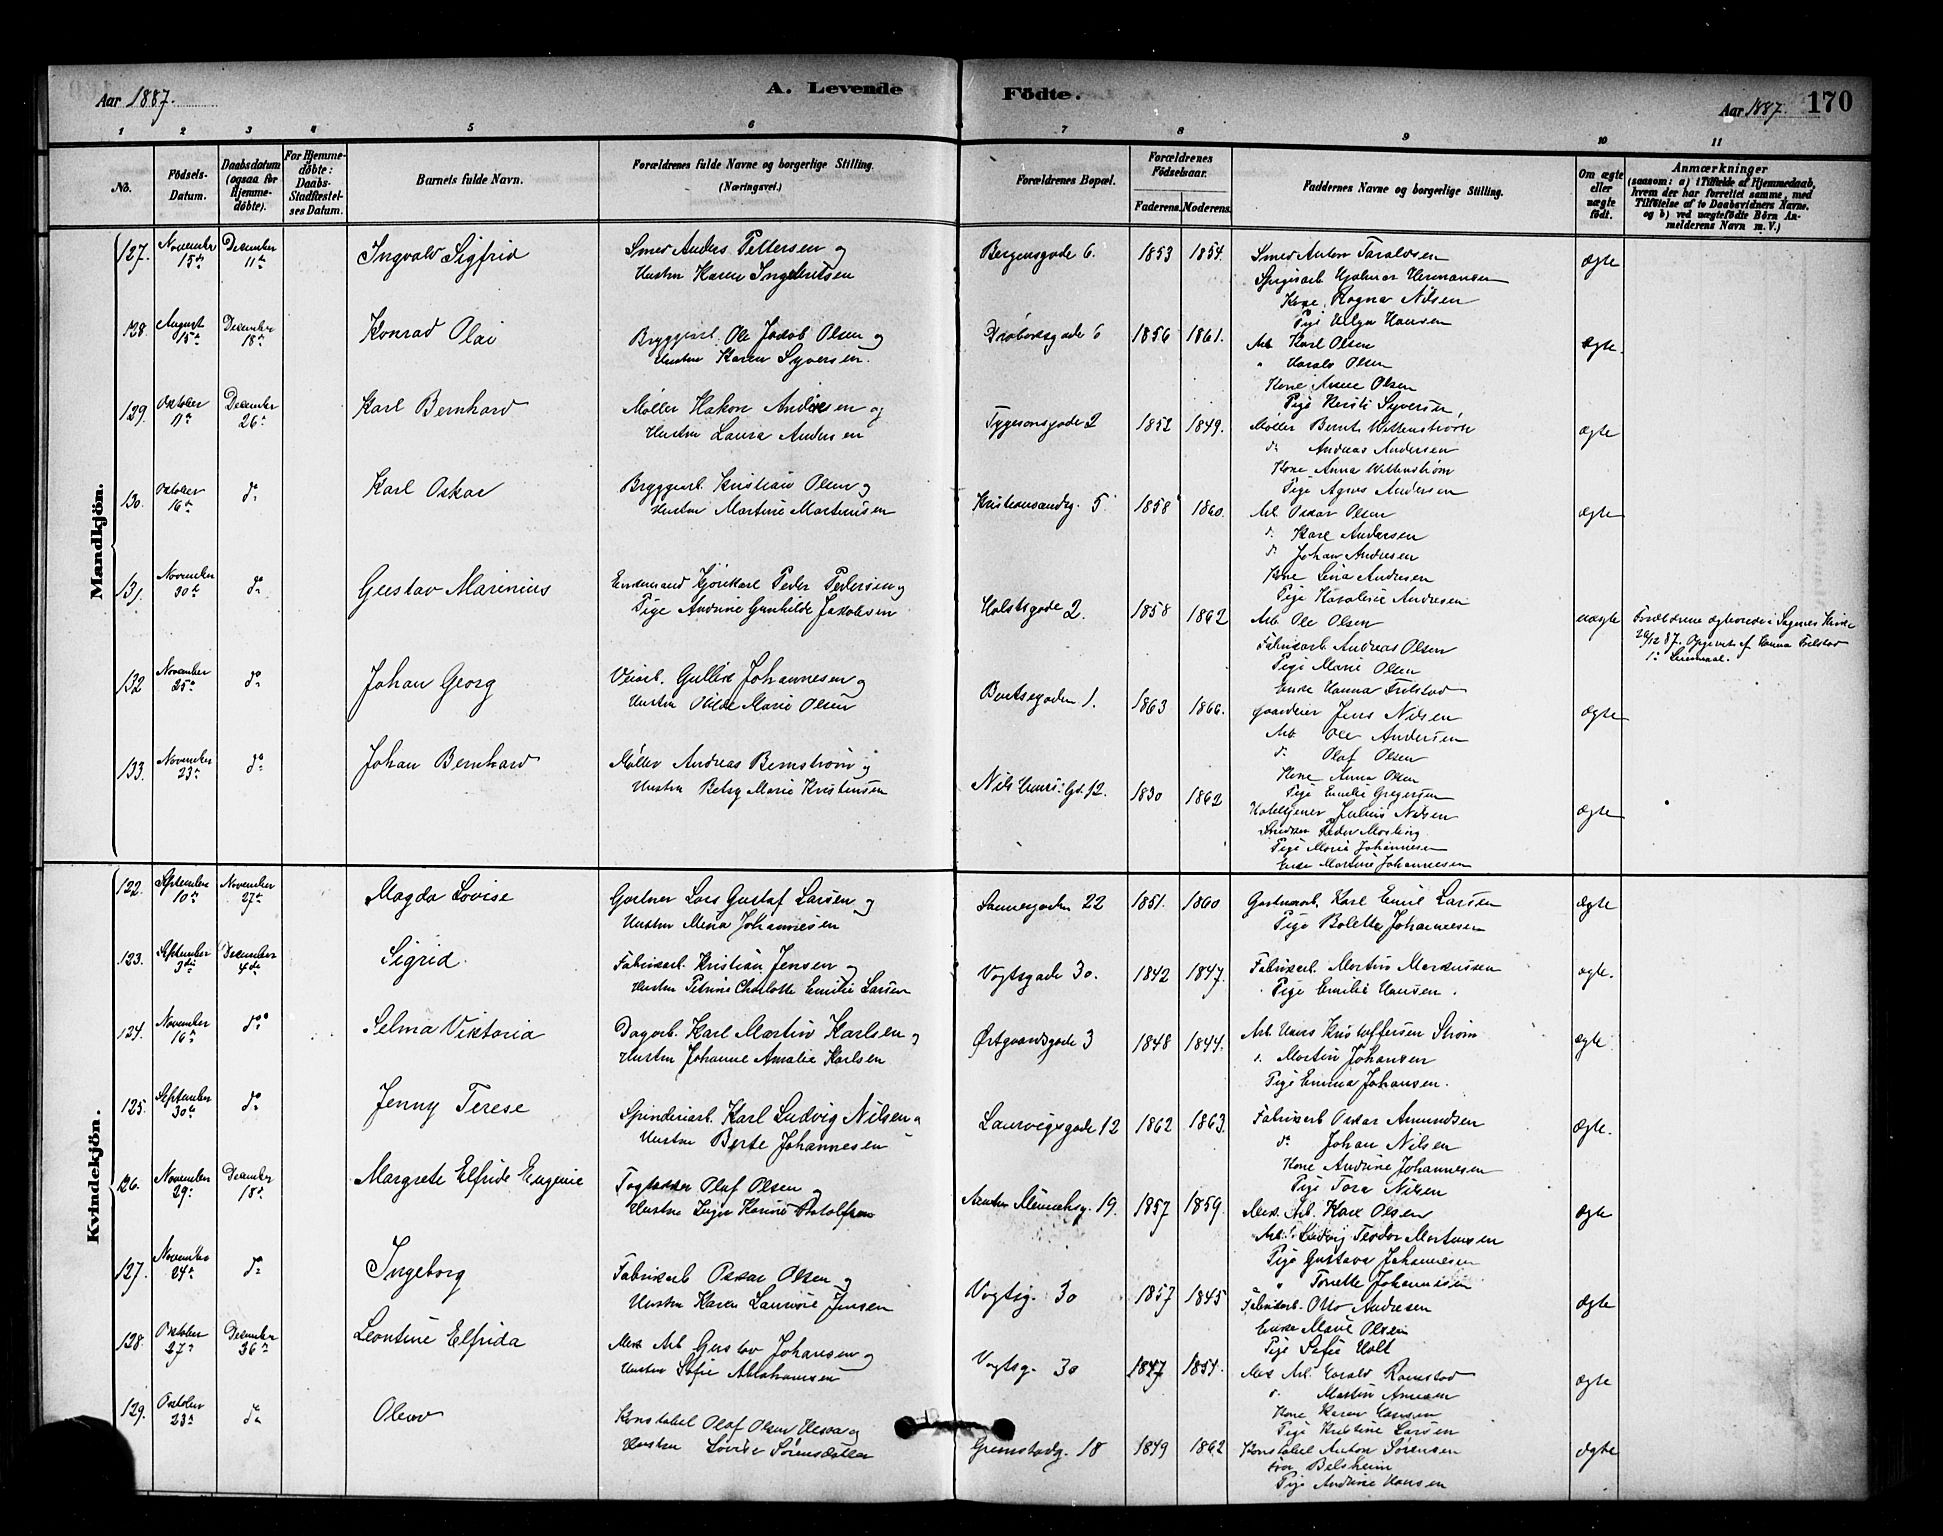 Aar 1887.
A. Levende
Födte.
Aar 1887.
170
1 2 3 4 5 6 7 8 9 10 11
No.
Födsels-Datum.
Daabsdatum (ogsaa for Hjemme-döbte).
For Hjemme-döbte: Daabs-Stadfæstel-ses Datum.
Barnets fulde Navn.
Forældrenes fulde Navne og borgerlige Stilling.
(Næringsvei.)
Forældrenes Bopæl.
Forældrenes Födselsaar.
Faderens. Moderens.
Faddernes Navne og borgerlige Stilling.
Om ægte eller uægte födt.
Anmærkninger
(saasom: a) i Tilfælde af Hjemmedaab,
hvem der har forrettet samme, med
Tilföielse af to Daabsvidners Navne,
og b) ved uægtefödte Börn An-
melderens Navn m. V.)
Mandkjön.
127. November 15de December 11te Ingvald Sigfrid
Smed Anders Pettersen og
Hustru Karen Ingebritsen
Bergensgade 6. 1853 1854.
Smed Anton Taraldsen
Hjalmar Hermansen
Kone Ragna Nilsen
Pige Helga Hansen
ægte
128. August 15de December 18de Konrad Olai
Bryggearb. Ole Jakob Olsen og
Hustru Karen Syversen.
Drøbaksgade 6 1856 1861.
Arb. Karl Olsen
" Harald Olsen
Kone Anne Olsen
Pige Kersti Syversen,
ægte.
129. Oktober December 26de Karl Bernhard
Møller Hakon Andersen og
Hustru Laura Andersen
Tygesonsgade 2 1852 1849.
Møller Bernt Wettenstrøm
do Andreas Andersen
Kone Anna Wettenstrøm
Pige Agnes Andersen
ægte
130. Oktober 16de do Karl Oskar
Bryggearb. Kristian Olsen og
Hustru Martine Martinsen
Kristiansandsg. 5 1858 1860.
Arb. Oskar Olsen
do Karl Andersen
do Johan Andresen
Kone Lina Andresen
Pige Karoline Andresen
ægte
131. November 30te do Gustav Marinius
Enkemand Kjørekarl Peder Pedersen og
Pige Andrine Gunhilde Jakobsen
Holstsgade 2. 1858 1862
Arb. Ole Olsen
Fabrikarb. Andreas Olsen
Pige Marie Olsen
Enke Hanna Frelstad
uægte
Forældrene ægteviede i Sagenes Kirke
26/12 87. Opgivet af Hanna Frelstad
132 November 25de do Johan Georg
Veiarb. Gullik Johannesen og
Hustru Olilde Marie Olsen
Bentsegaden 1. 1863 1866.
Gaardeier Jens Nilsen
Arb. Ole Andersen
do Olaf Olsen
Kone Anna Olsen
Pige Emilie Gregersen
ægte
133. November 23de do Johan Bernhard
Møller Andreas Bernstrøm og
Hustru Betsy Marie Kristensen
Nils Huus: Gd. 12. 1830 1862
Julius Nilsen
Snedker Peder Mosling
Pige Marie Johannesen
Enke Martine Johannesen
ægte
Kvindekjön.
122. September 10de November 27de Magda Lovise
Gartner Lars Gustaf Larsen og
Hustru Mena Johannesen
Sannergaden 22 1851. 1860
Gartnerarb. Karl Emil Larsen
Pige Bolette Johannesen
ægte
123. September 3die December 4de Sigrid.
Fabrikarb. Kristian Jensen og
Hustru Petrine Charlotte Emilie Larsen
Vogtsgade 30. 1842 1847.
Fabrikarb. Martin Markussen
Pige Emilie Hansen.
ægte.
124. November 16de do Selma Viktoria
Dagarb. Karl Martin Karlsen og
Hustru Johanne Amalie Karlsen
Østgaardsgade 3 1848 1844.
Arb. Hans Kristoffersen Strøm
do Martin Johansen
Pige Emma Johansen.
ægte.
125. September 30te do Jenny Terese
Spinderiarb. Karl Ludvig Nilsen og
Hustru Berte Johannesen
Laurvigsgade 12 1862 1863.
Fabrikarb Oskar Amundsen
do Johan Nilsen
Kone Andrine Johannesen
Pige Tora Nilsen
ægte.
126. November 29de December 18de Margrete Elfride Eugenie
Olaf Olsen og
Hustru Inger Karine
19. 1857 1859.
Mek. Arb. Karl Olsen
Arb. Ludvig Teodor Mortensen
Pige Gustava Johannesen
" Tonette Johannesen
ægte
127. November 24de do Ingeborg
Fabrikarb Oskar Olsen og
Hustru Karen Laurine Jensen
Vogtsg. 30 1857 1845
Fabrikarb. Otto Andresen
Enke Marie Olsen
Pige Sofie Holt
ægte
128. Oktober 27de December 26de Leontine Elfrida
Mek Arb Gustav Johansen og
Hustru Sofie Abrahamsen
Vogtsg. 30 1847 1854.
Mek Arb. Harald Ramstad
do Martin Amesen
Kone Karen Hansen
Pige Kristine Larsen
ægte
129. Oktober 23de do Olew
Konstabel Olaf Olsen og
Hustru Lovise Sørensdatter
Grimstadg. 18 1849 1862
Konstabel Anton Sørensen
Belsheim
Pige Andrine Hansen
ægte